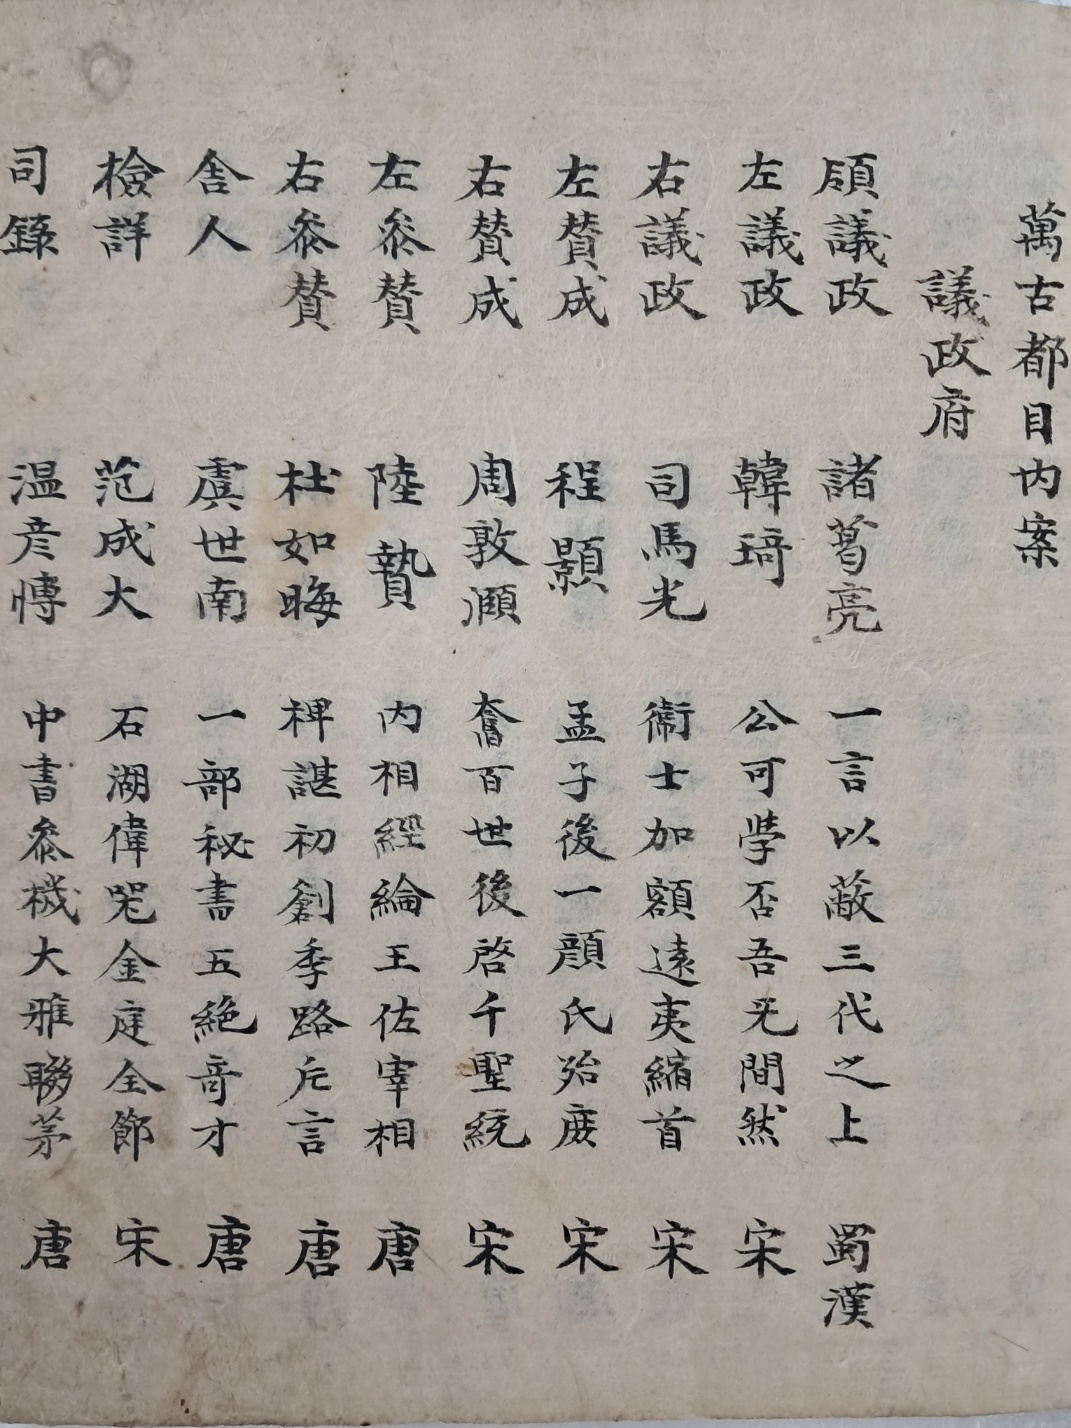 萬古都目內案
議政府
領議政 諸葛亮 一言以蔽三代之上 蜀漢
左議政 韓琦 公可學否吾旡間然 宋
右議政 司馬光 衛士加額遠夷縮首 宋
左賛成 程顥 孟子後一顔氏殆庶 宋
右賛成 周敦頤 奮百世後啓千聖統 宋
左叅賛 陸贄 內相經綸王佐宰相 唐
右叅賛 杜如晦 裨諶初創季路片言 唐
舎人 虞世南 一部秘書五絶奇才 唐
檢詳 范成大 石湖偉 金庭全節 宋
司錄 温彦愽 中書叅機大雅聯茅 唐